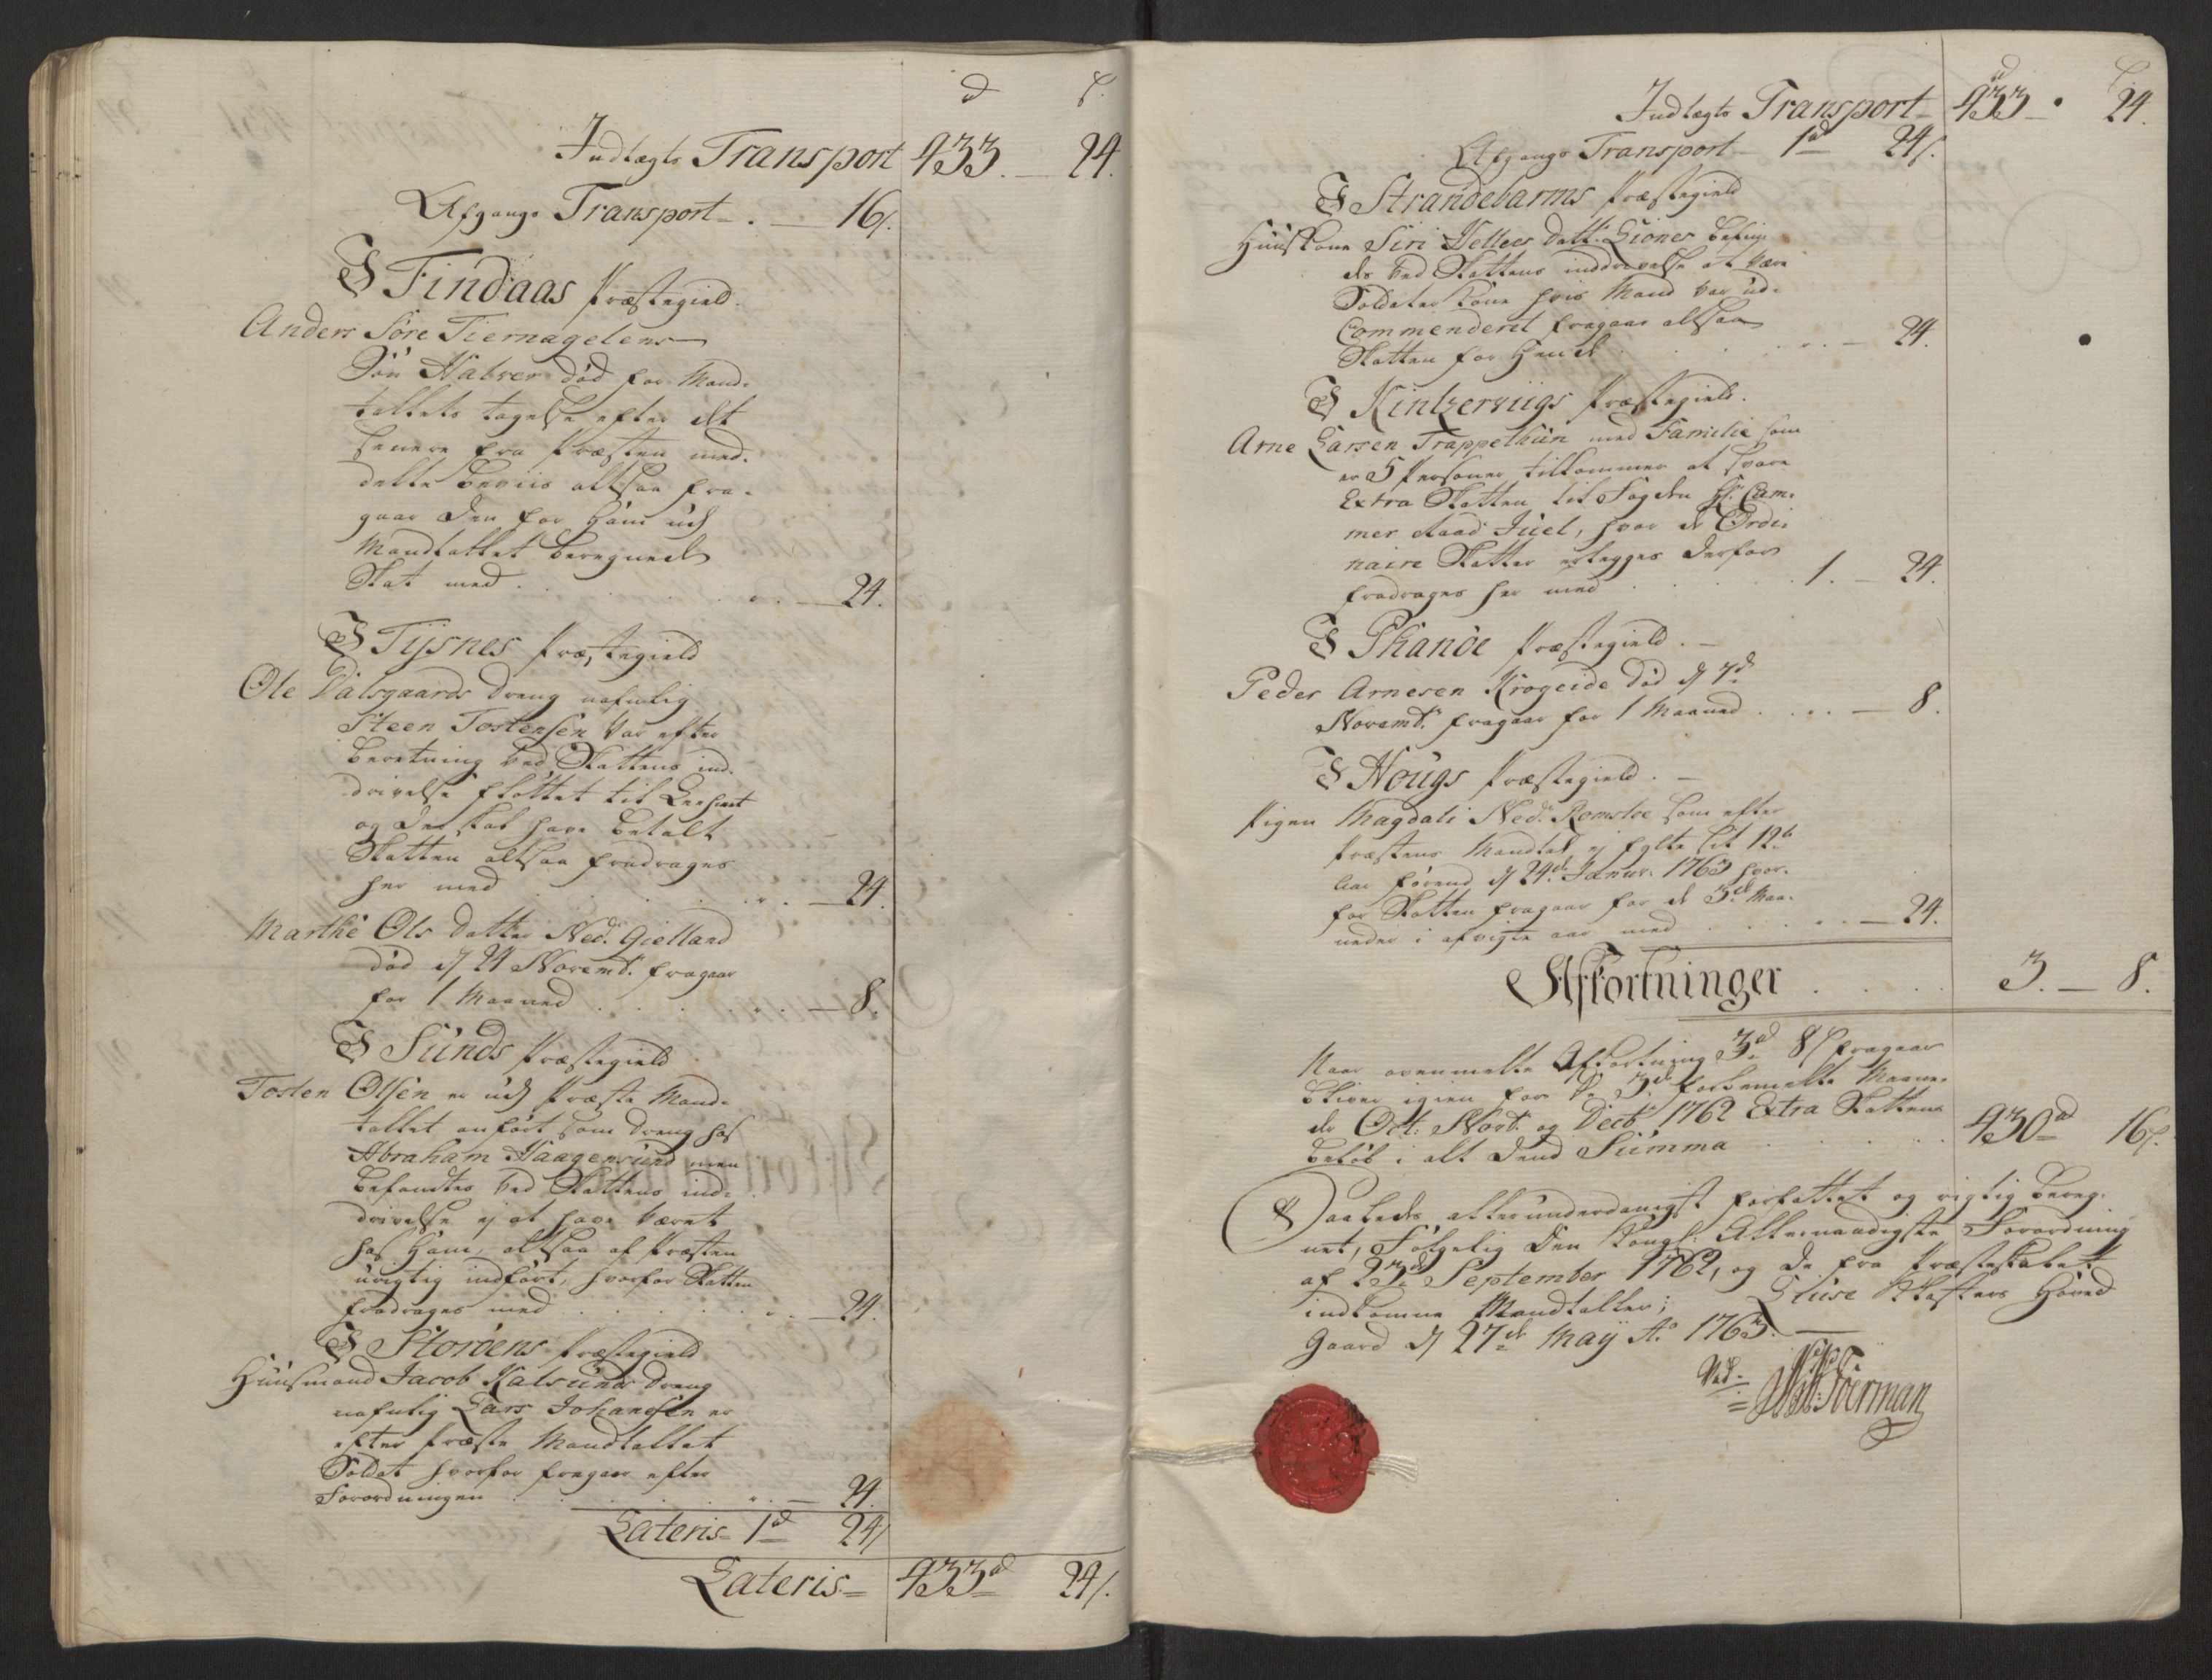 d ß.
Indtægts Transport 433. — 24.
Afgangs Transport . — 16ß.
I Findaas Præstegield.
Anders Søre Tiernagelens
Søn Halver død for Mand-
tallets tagelse efter det
senere fra Præsten med-
deelte beviis altsaa fra-
gaar den for Ham udj
Mandtallet beregnede
Skat med . . . — 24.
I Tysnes Præstegield
Ole Dalsgaards dreng nafnlig
Steen Tostensen var efter
beretning ved Skattens ind-
drivelse flöttet til
og der skal have betalt
Skatten altsaa fradrages
her med . . . — 24.
Marthe Ols datter Ned. Gielland
død d 24 Novembr. fragaar
for 1 Maaned . . . — 8.
I Sunds Præstegield
Tosten Olsen er udj Præste Mand-
tallet anført som dreng hos
Abraham Haagensund men
befandtes ved Skattens ind-
drivelse ej at have været
hos Ham, altsaa af Præsten
urigtig indført, hvorfor Skatten
fradrages med . . . — 24.
I Storöens Præstegield
Huusmand Jacob Kalsunds dreng
nafnlig Lars Johansen er
efter Præste Mandtallet
Soldat hvorfor fragaar efter
Forordningen . . . — 24.
Lateris 1d 24ß
Lateris 433d 24ß.
d ß
Indtægts Transport 433 . 24.
Afgangs Transport 1d 24ß.
I Strandebarms Præstegield
Huuskone Siri Vellees dattr. Giönes befin-
des ved Skattens inddrivelse at være
Soldater Kone hvis Mand var ud-
Commenderet fragaar altsaa
Skatten for Hende . . . — 24.
I Kintzerviigs Præstegield.
Arne Larsen Trappethun med Familie som
er 5 Personer tilkommer at svare
Extra Skatten til Fogden Hr. Cam-
mer Raad Juel, hvor de Ordi-
naire Skatter erlegges derfor
fradrages her med . . . 1. — 24.
I Skanöe Præstegield. —
Peder Arnesen Krogeide død d 7d
Novembr. fragaar for 1 Maaned . . . — 8.
I Hougs Præstegield. —
Pigen Magdali Ned. Romsloe som efter
Præstens Mandtal ej fylte sit 12te
Aar förend d 24de Januar. 1763 hvor-
for Skatten fragaar for de 3de Maa-
neder i afvigte aar med . . . — 24.
Afkortninger . . . 3. — 8.
Naar ovenmelte Afkortning 3d 8ß fragaar
bliver igien for de 3de forbemelte Maane-
der Oct. Novbr. og Decbr. 1762 Extra Skattens
beløb i alt dend Summa . . . 430d 16ß.
Saaledes allerunderdanigst forfattet og rigtig bereg-
net, Fölgelig den Kongl. Allernaadigste Forordning
af 23de September 1762, og de fra Præsteskabet
indkomne Mandtaller; Gaard d 27de May Ao. 1763. —